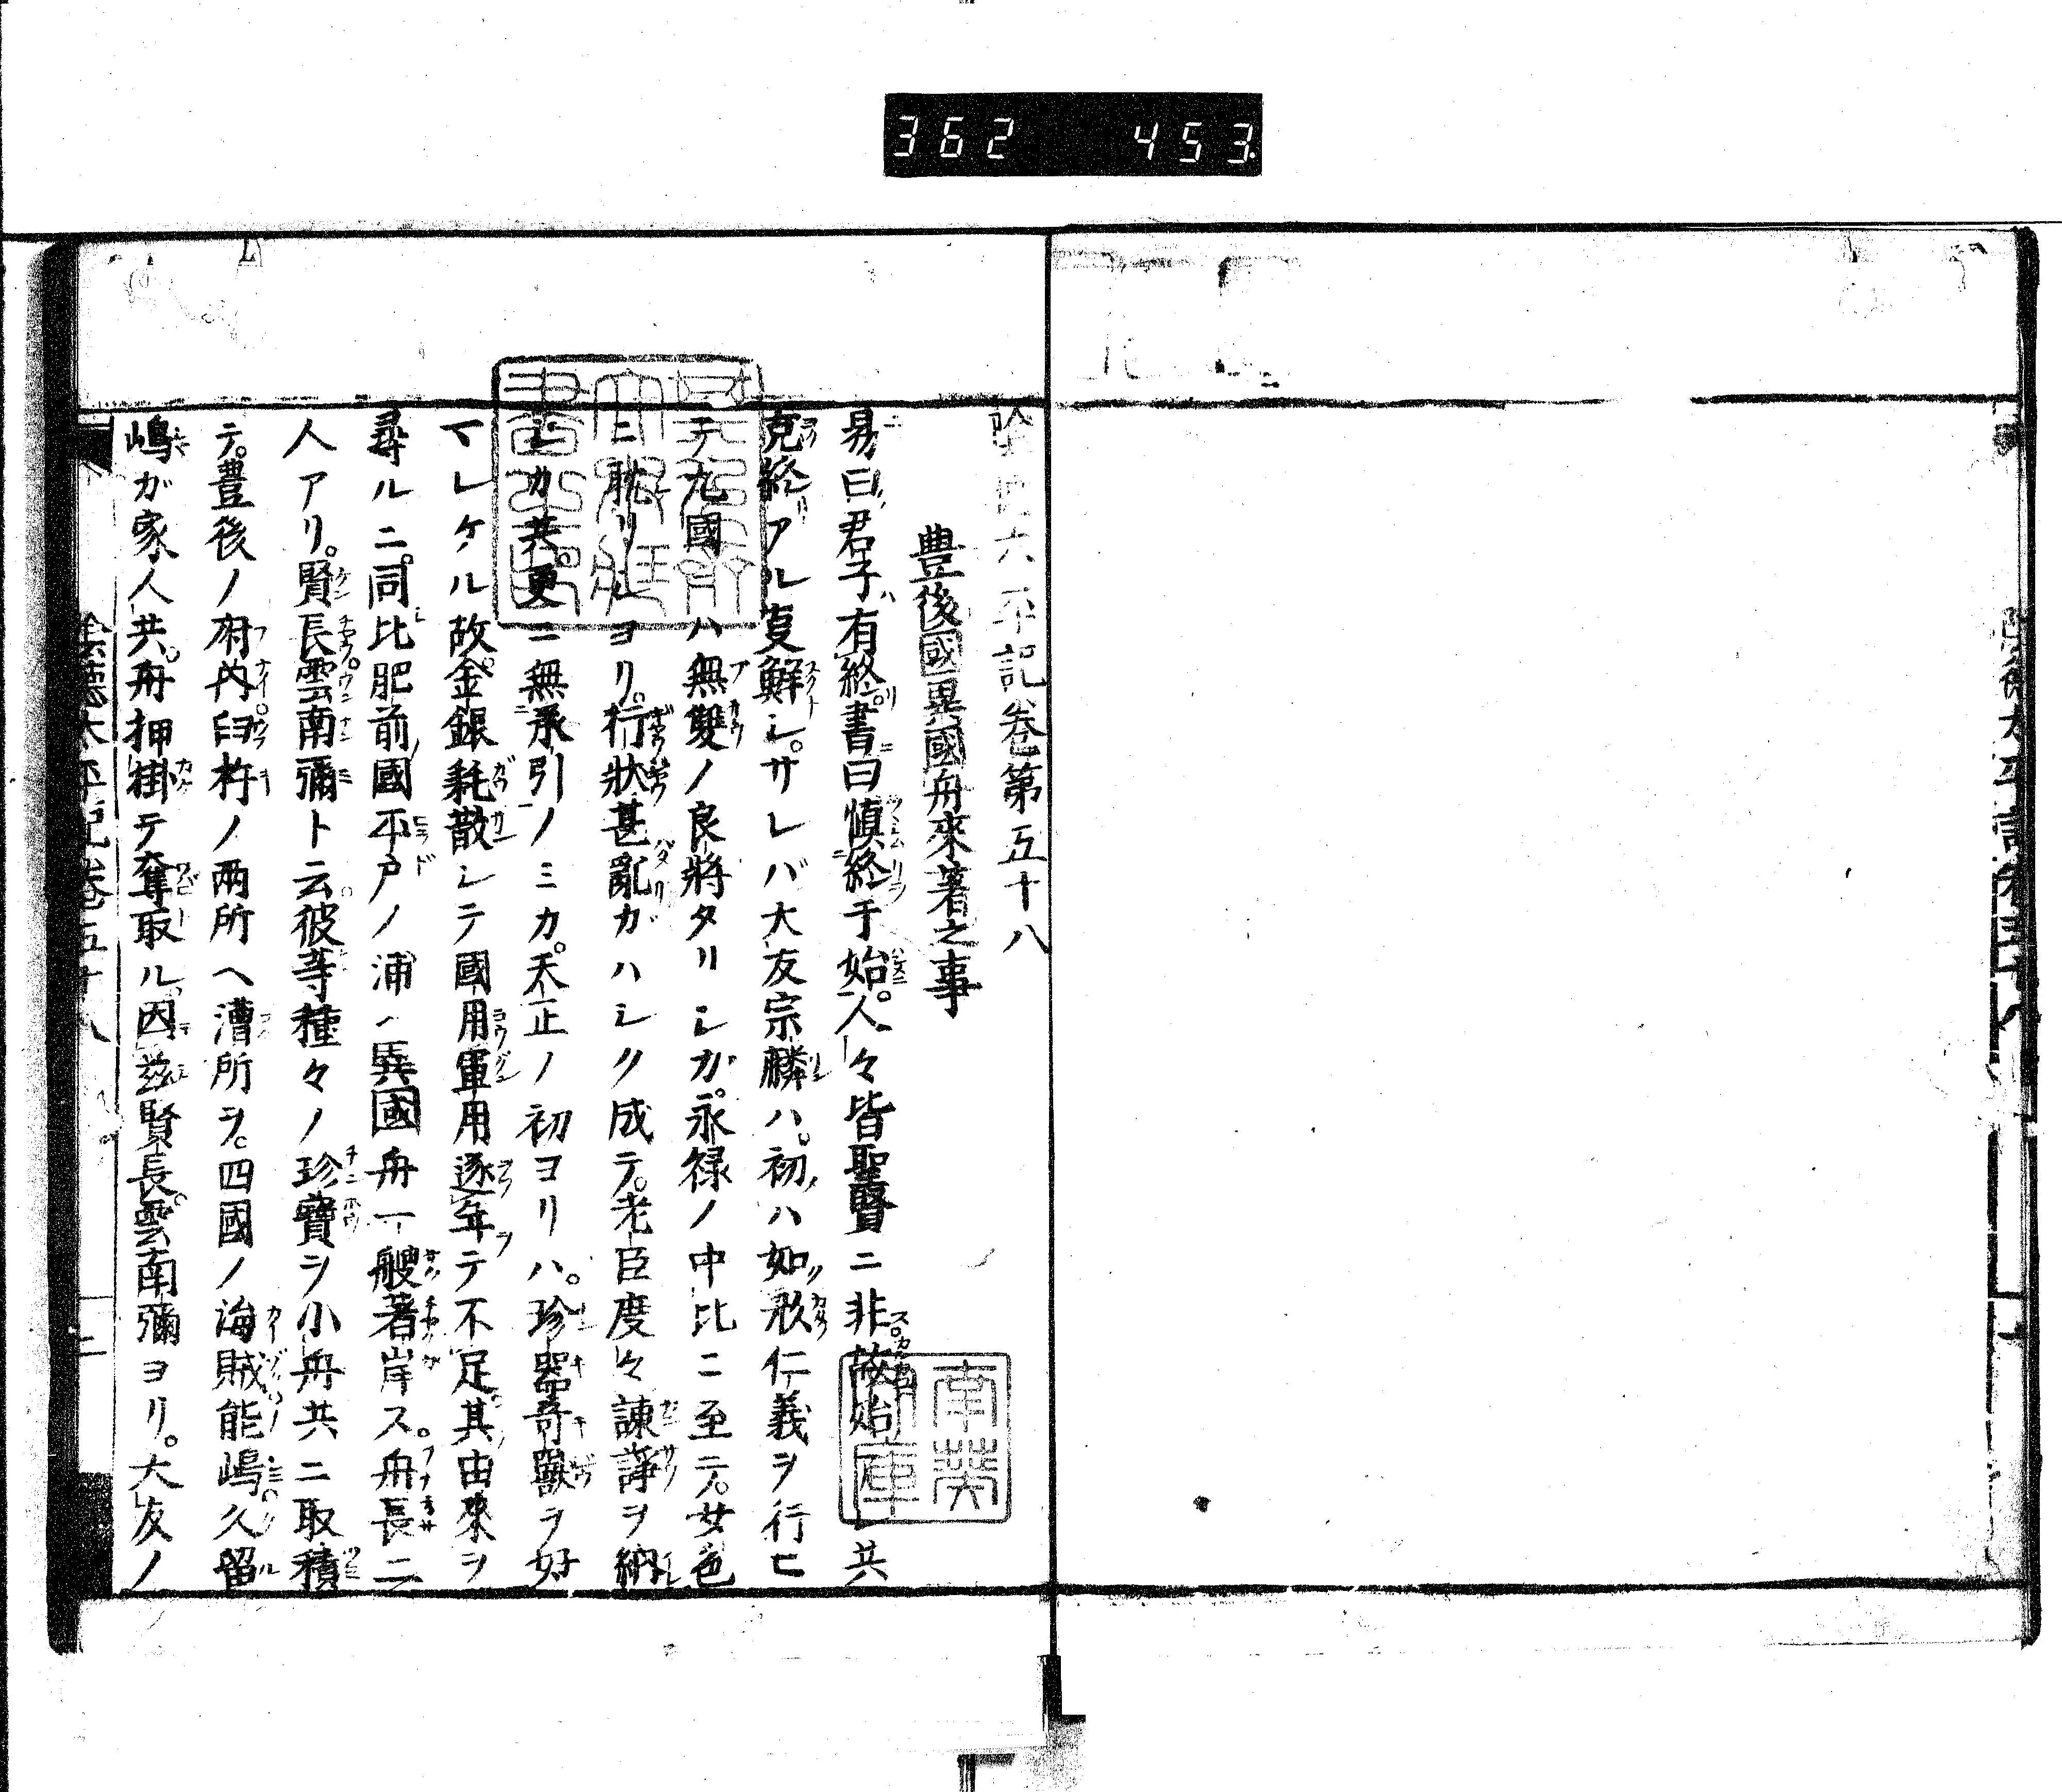 362 453
陰德太平記卷第五十八
豊後國異國舟來著之事
易曰君子有終書曰愼終于始人々皆聖賢ニ非故始レ共
克終アル叓鮮シ。サレバ大友宗麟ハ。初ハ如形仁義ヲ行ヒ
テ九國ニハ無雙ノ良將タリシガ。永禄ノ中比ニ至テ。女色
ニ耽リシヨリ。行狀甚亂ガハシク成テ。老臣度々諫諍ヲ納
レシカ共。更ニ無承引ノミカ。天正ノ初ヨリハ。珍器奇獸ヲ好
マレケル故。金銀耗散シテ國用軍用逐年テ不足。其由來ヲ
尋ルニ。同比肥前國平戸ノ浦ヘ異國舟一艘著岸ス。舟長二
人アリ。賢長。雲南彌ト云。彼等種々ノ珍寶ヲ小舟共ニ取積
テ。豊後ノ府内。臼杵ノ兩所ヘ漕所ヲ。四國ノ海賊能嶋。久留
嶋ガ家人共。舟押掛テ奪取ル。因茲賢長。雲南彌ヨリ。大友ノ
陰德太平記卷五十八
南葵
文庫